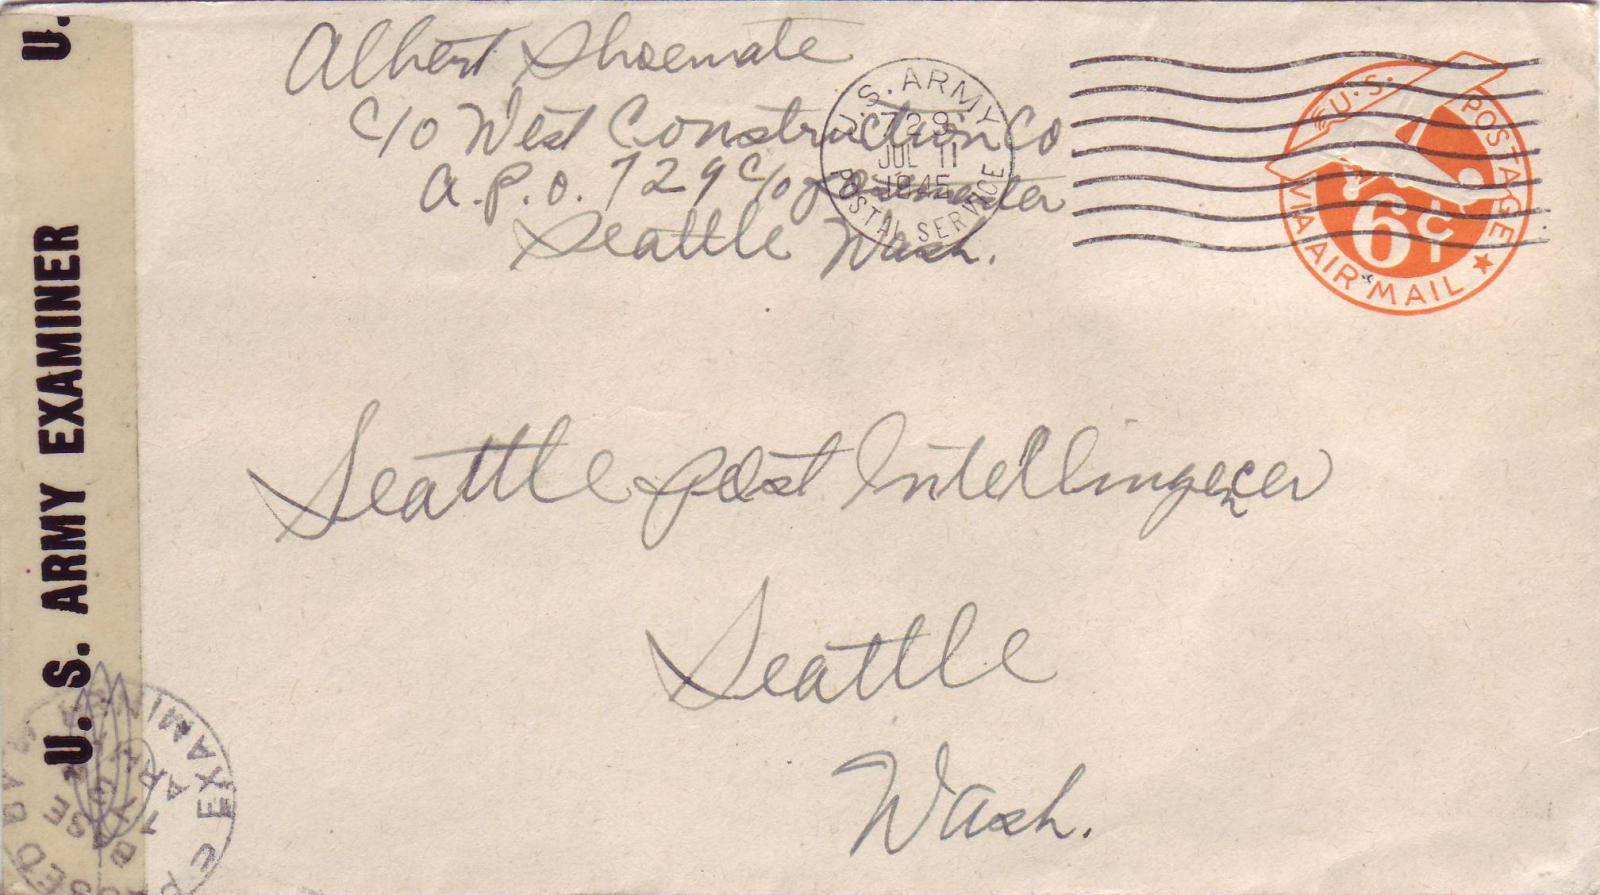 Albert Shoemate
c/o West Construction Co
A.P.O. 729 c/o Postmaster
Seattle Wash.
U.S. ARMY
729
JUL 11
1945
POSTAL SERVICE
U.S. POSTAGE
6¢
VIA AIR MAIL
Seattle Post Intellingencer
Seattle
Wash.
U. S. ARMY EXAMINER
U.
ARMY
EXAMIN